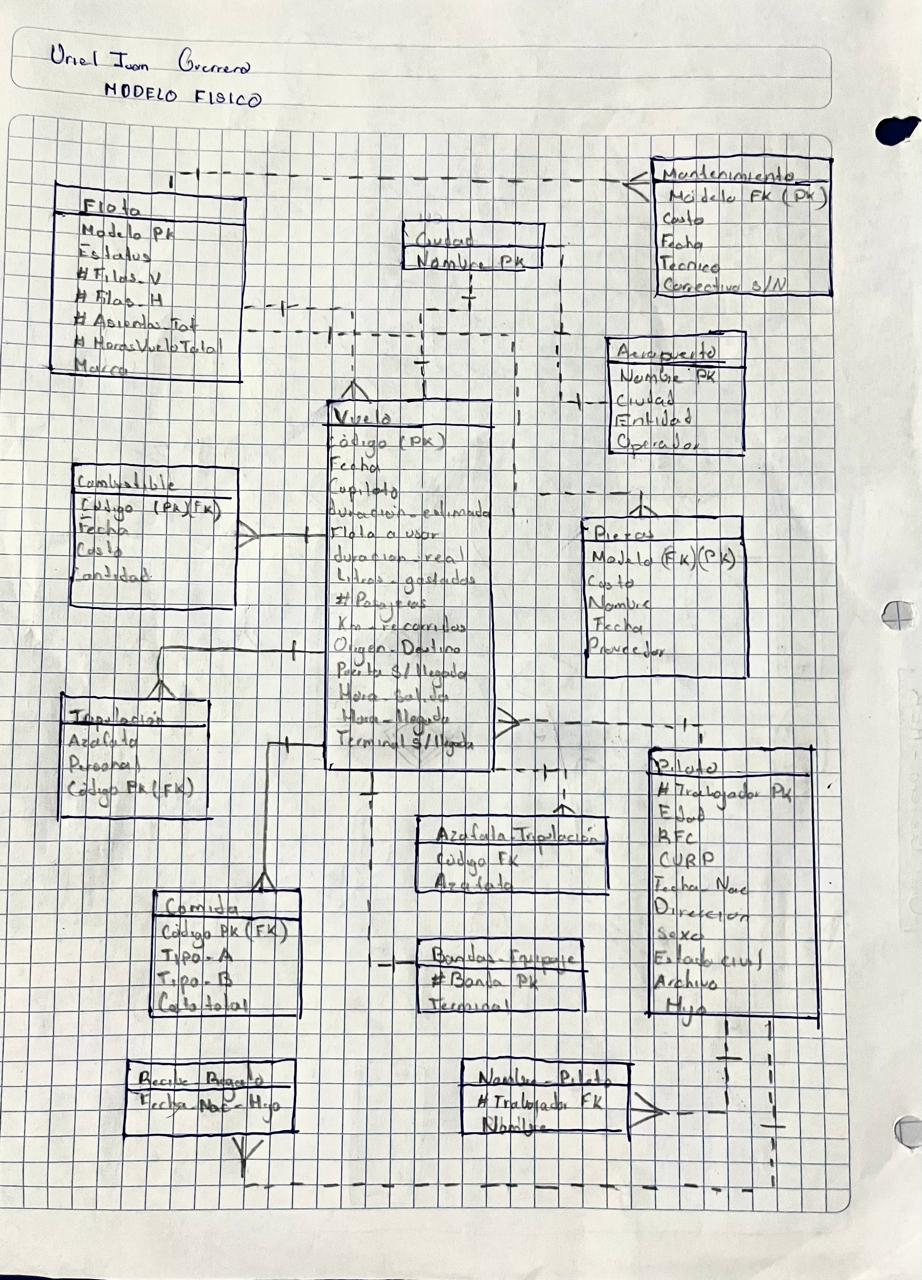 Uriel Juan Guerrero
MODELO FISICO
Mantenimiento
Modelo FK (PK)
Costo
Fecha
Tecnico
Correctivo S/N
Flota
Modelo PK
Estatus
# Filas_V
# Filas_H
# Asientos_Tot
# HorasVueloTotal
Marca
Ciudad
Nombre PK
Aeropuerto
Nombre PK
Ciudad
Entidad
Operador
Vuelo
Código (PK)
Fecha
Copiloto
duracion_estimada
Flota a usar
duracion_real
Litros_gastados
# Pasajeros
Km_recorridos
Origen_Destino
Puerta S/llegada
Hora_Salida
Hora_llegada
Terminal S/llegada
Combustible
Código (PK)(FK)
Fecha
Costo
Cantidad
Piezas
Modelo (FK)(PK)
Costo
Nombre
Fecha
Proveedor
Tripulación
Azafata
Personal
Código PK (FK)
Piloto
# Trabajador PK
Edad
RFC
CURP
Fecha_Nac
Direccion
Sexo
Estado civil
Archivo
Hijo
Azafata_Tripulación
Código FK
Azafata
Comida
Código PK (FK)
Tipo_A
Tipo_B
Costo total
Bandas_Equipaje
# Banda PK
Terminal
Recibe Regalo
Fecha_Nac_Hijo
Nombre_Piloto
# Trabajador FK
Nombre